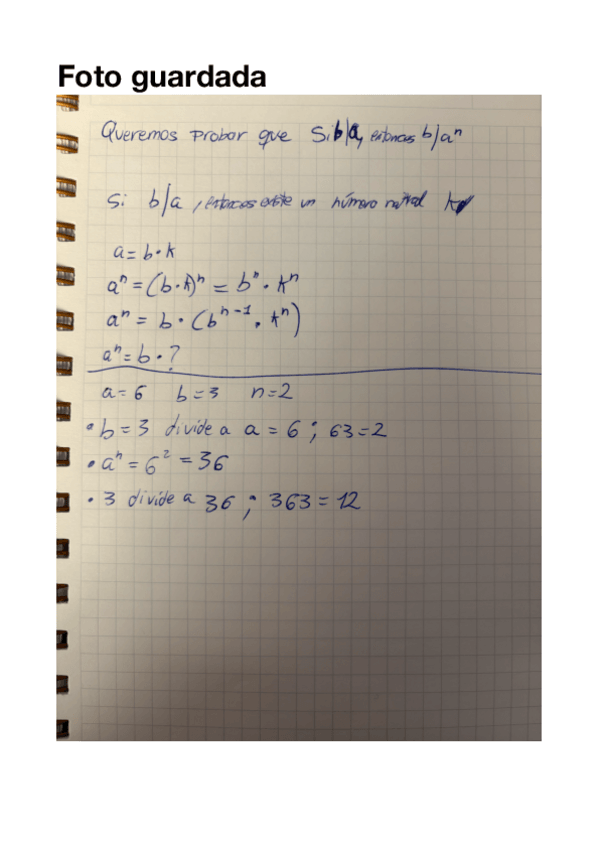 Foto guardada
Queremos probar que Si b|a, entonces b|aⁿ
Si b|a, entonces existe un número natural k
a = b·k
aⁿ = (b·k)ⁿ = bⁿ · kⁿ
aⁿ = b · (bⁿ⁻¹ · kⁿ)
aⁿ = b · ?
a = 6 b = 3 n = 2
• b = 3 divide a a = 6 ; 63 = 2
• aⁿ = 6² = 36
• 3 divide a 36 ; 363 = 12